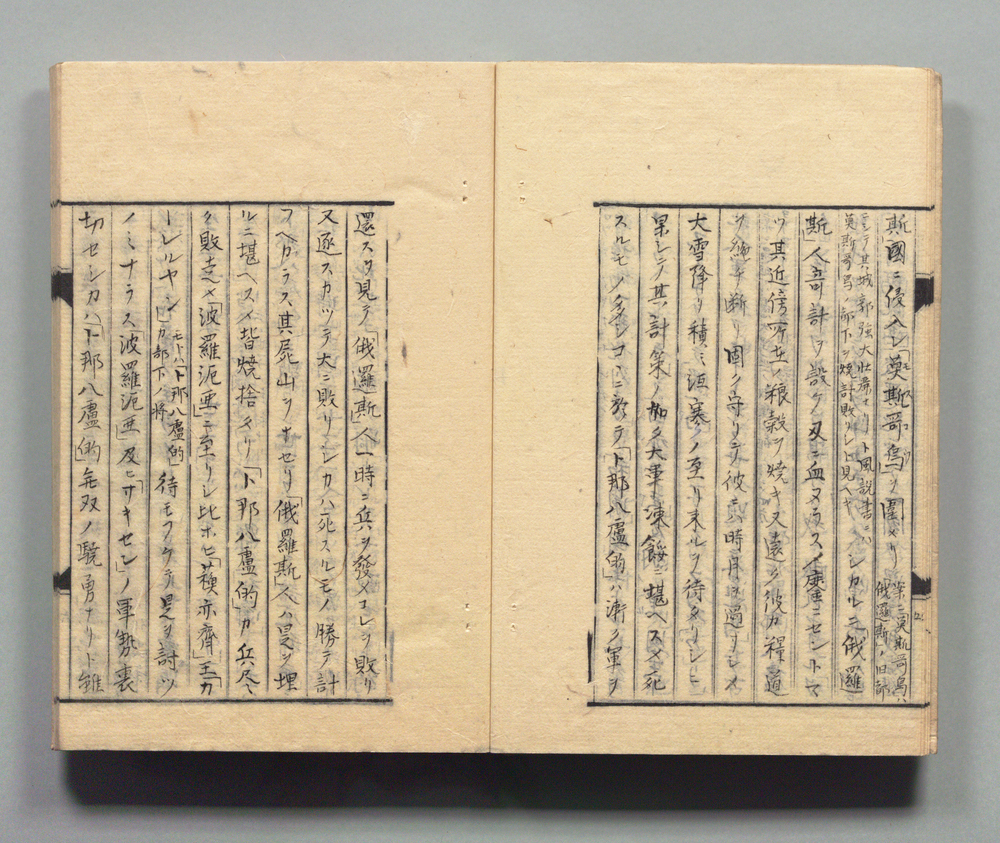 斯國ニ侵入シ「莫斯哥烏」ヲ圍メリ 案ニ莫斯哥烏ハ俄羅斯ノ旧都
ニシテ其城郭強大壮麗ナリ風説書ニハ莫斯哥烏ノ都下ヲ焼討敗リシト見ヘキ シカルニ俄羅
斯人奇計ヲ設ケ刃ニ血ヌラスメ鏖ニセントマ
ツ其近傍所在ノ粮穀ヲ焼キ又遠ク彼カ糧道
ヲ絶チ断リ固ク守リテ彼ニ時月ヲ過リシメ
大雪降リ積ミ沍寒ノ至リ来ルヲ待タリシニ
果シテ其計策ノ如ク大軍凍餒ニ堪ヘスメ死
スルモノ多シコヽニ於テ「卜那八盧的」ハ漸ク軍ヲ
還スヲ見テ「俄羅斯」人一時ニ兵ヲ發メコレヲ敗リ
又逐スカツテ大ニ敗リシカハ死スルモノ勝テ計
フヘカラス其屍山ヲナセリ「俄羅斯」人ハ是ヲ埋
ルニ堪ヘスメ皆焼捨メリ「卜那八盧的」カ兵尽
ク敗走メ「波羅泥亜」ニ至リシ此ホヒ「蘓亦齊」王「カ
ーレルヤン」モト「卜那八盧的」カ部下ノ將 待モフケテ是ヲ討ツ
ノミナラス「波羅泥亜」及ヒ「サキセン」ノ軍勢裏
切セシカハ「卜那八盧的」無双ノ驍勇ナリト雖